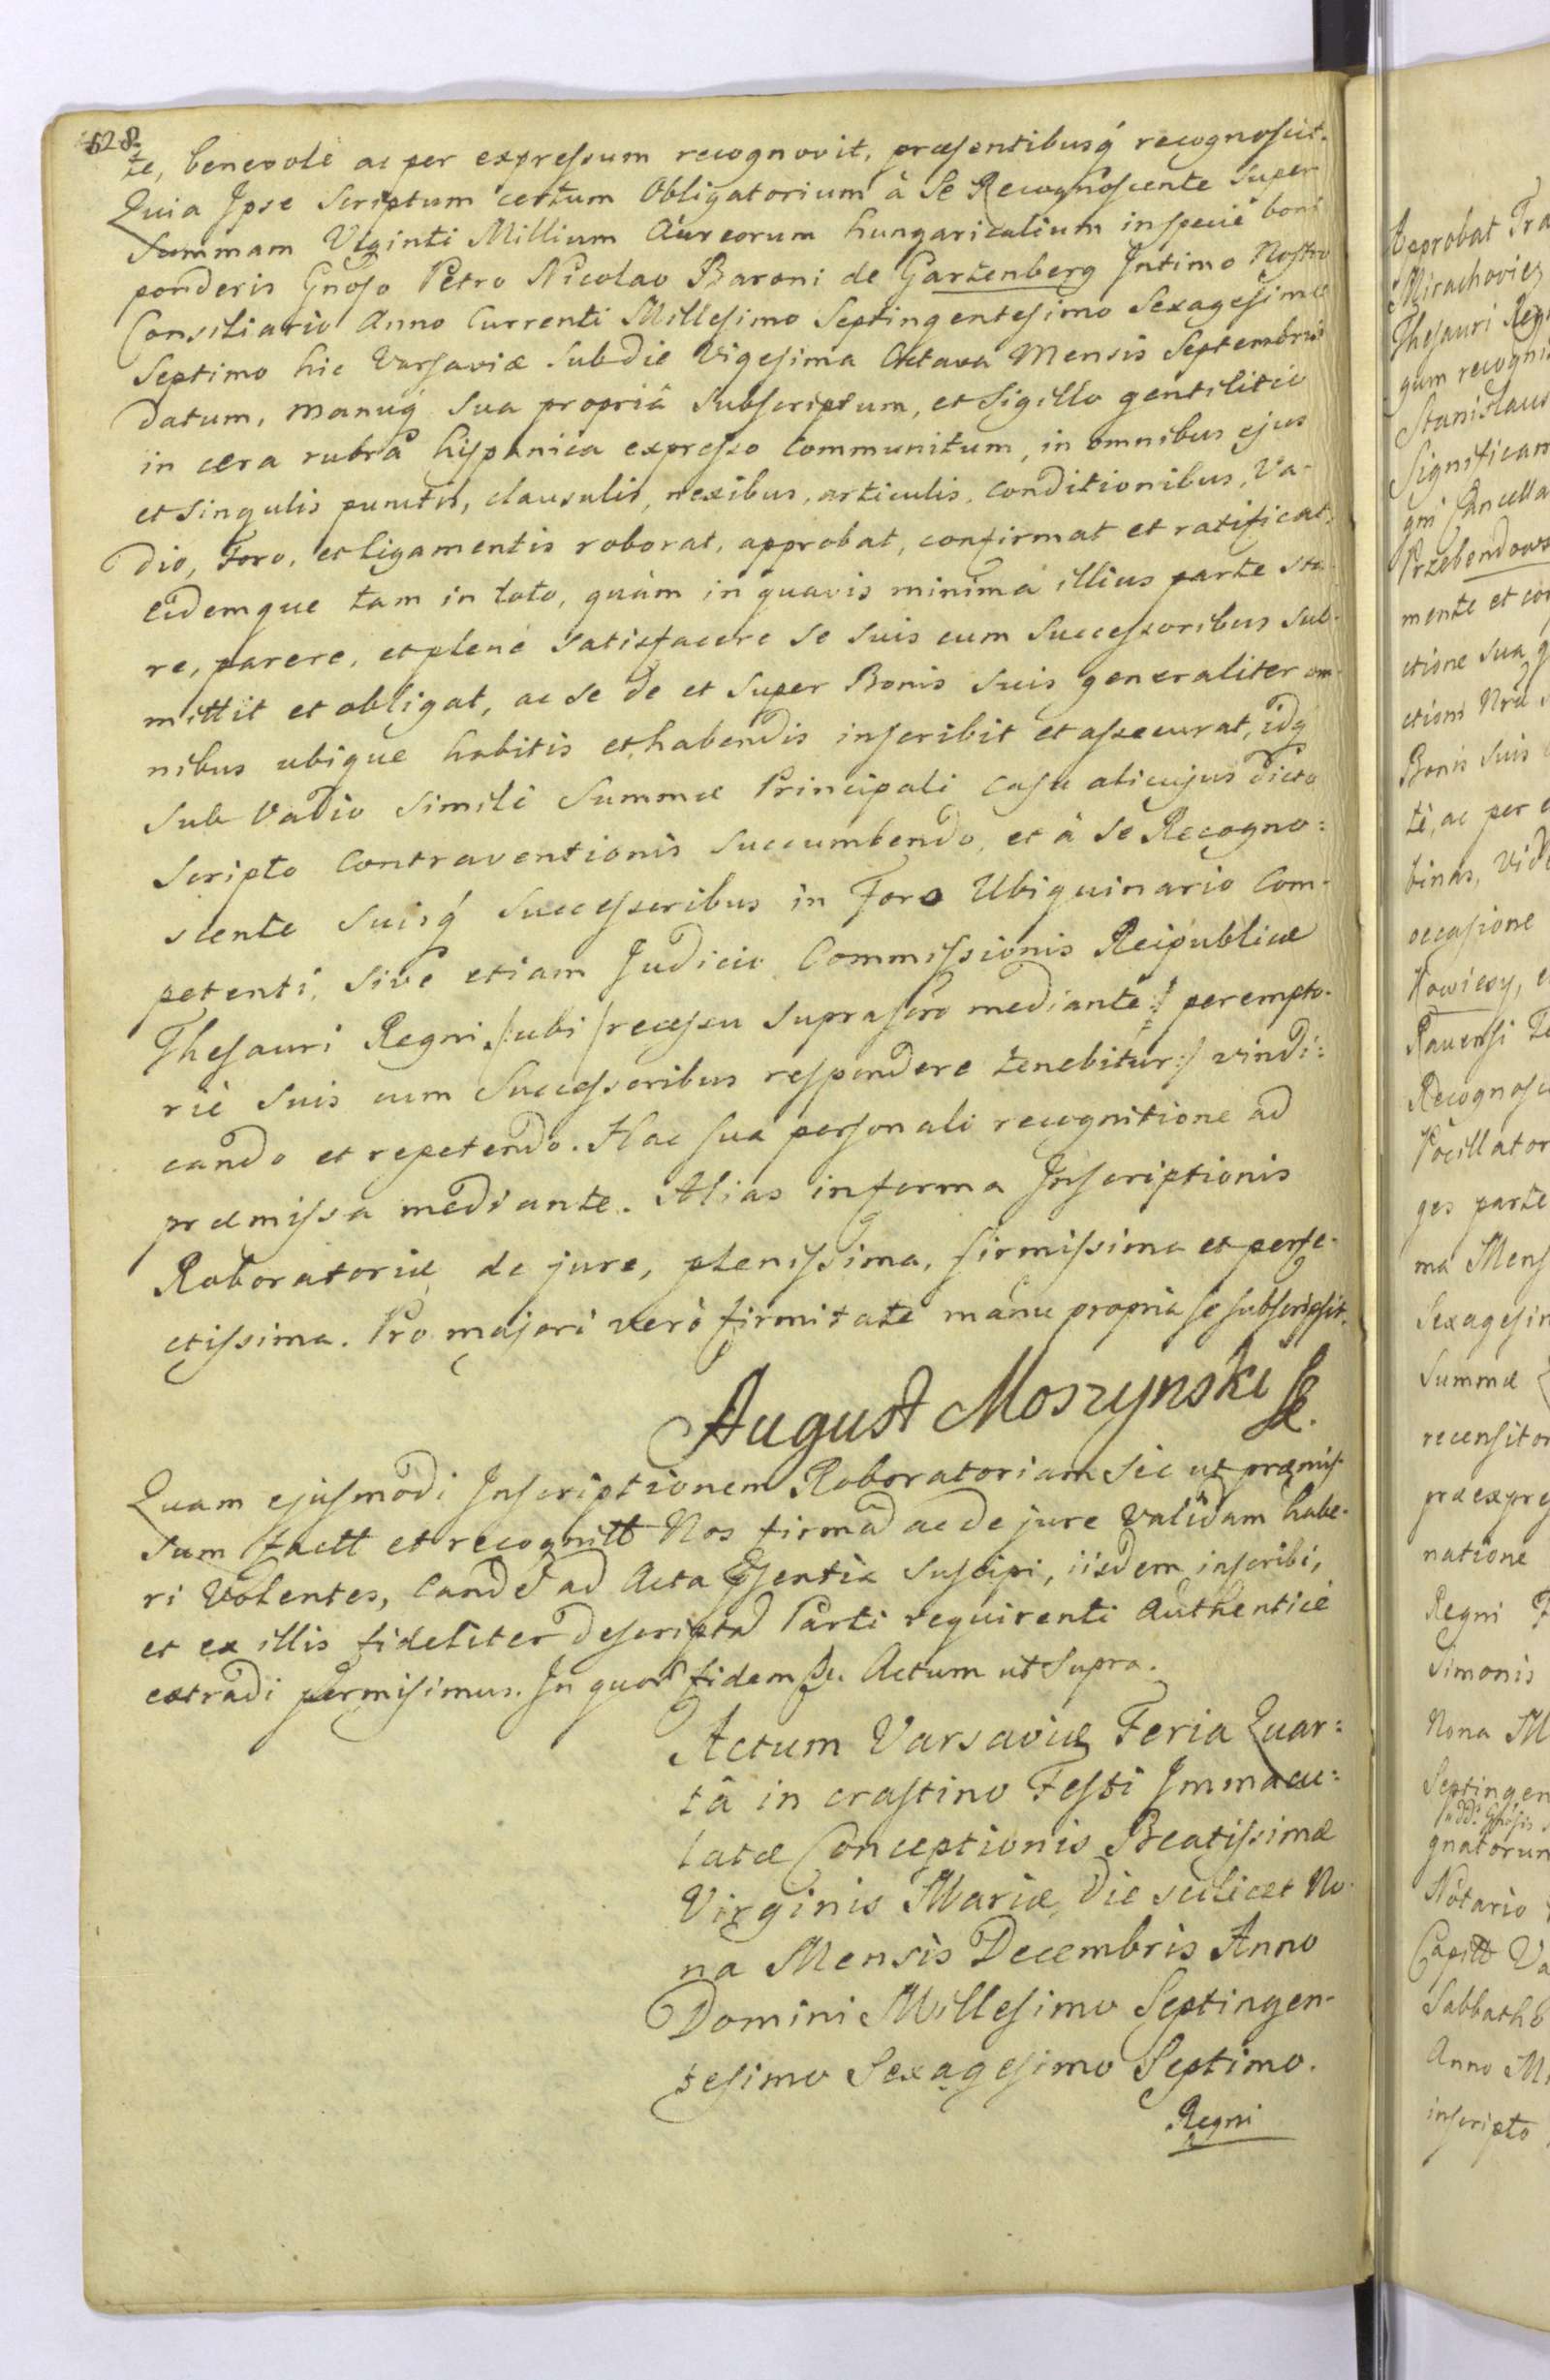 528.
te, benevole ac per expressum recognovit, præsentibusq́ recognoscit.
Quia Ipse Scriptum certum Obligatorium à Se Recognoscente super
Summam Viginti Millium Aureorum hungaricalium in specie boni
ponderis Gnoso Petro Nicolao Baroni de Gartzenberg Intimo Nostro
Consiliario Anno Currenti Millesimo Septingentesimo Sexagesimo
Septimo hic Varsaviæ sub die Vigesima Octava Mensis Septembris
datum, manuq́ sua propriâ subscriptum, et Sigillo gentilitio
in cera rubrâ hispanica expresso Communitum, in omnibus ejus
et singulis punctis, clausulis, nexibus, articulis, conditionibus, Va-
dio, Foro, et ligamentis roborat, approbat, confirmat et ratificat,
Eidemque tam in toto, quàm in quavis minimâ illius parte sta-
re, parere, et plene satisfacere se suis cum Successoribus sub-
mittit et obligat, ac se de et super Bonis suis generaliter om-
nibus ubique habitis et habendis inscribit et assecurat, idq́
sub Vadio simili Summæ Principali casu alicujus dicto
Scripto Contraventionis succumbendo, et à Se Recogno:
scente suisq́ successoribus in Foro Ubiquinario Com-
petenti, sive etiam Judicio Commissionis Reipublicæ
Thesauri Regni /:ubi recessu suprascro mediante:/ perempto-
rie suis cum Successoribus respondere tenebitur:/ vindi:
cando et repetendo. Hac sua personali recognitione ad
præmissa mediante. Alias in forma Inscriptionis
Roboratoriæ de jure, plenissima, firmissima et perfe-
ctissima. Pro majori verò firmitate manu propria se subscripsit.
August Moszynski
Quam ejusmodi Inscriptionem Roboratoriam sic ut præmis-
sum factt et recognitt Nos firmã ac de jure Validam habe-
ri Volentes, eandẽ ad Acta pñtia suscipi, iisdem inscribi,
et ex illis fideliter descriptã Parti requirenti Authentice
extradi permisimus. In quor fidem &c. Actum ut supra.
Actum Varsaviæ Feria Quar:
tâ in crastino Festi Immacu:
latæ Conceptionis Beatissimæ
Virginis Mariæ, die scilicet No-
na Mensis Decembris Anno
Domini Millesimo Septingen-
tesimo Sexagesimo Septimo.
Regni
Approbat Tra
Mirachovicz
Thesauri Reg
gum recogni
Stanislaus
Significam
gni Cancella
Przebendows
mente et co
ctione sua q
ctioni Nrã
Bonis suis
te, ac per e
binas, vide
occasione
Ravensi Te
Recognosc
Pocillator
ges parte
ma Mens
Sexagesim
Summæ
recensitor
præexpre
natione
Regni
Simonis
Nona M
Septingen
gnatorum
Notario
Capitt Va
Sabbatho
Anno Mi
inscripto